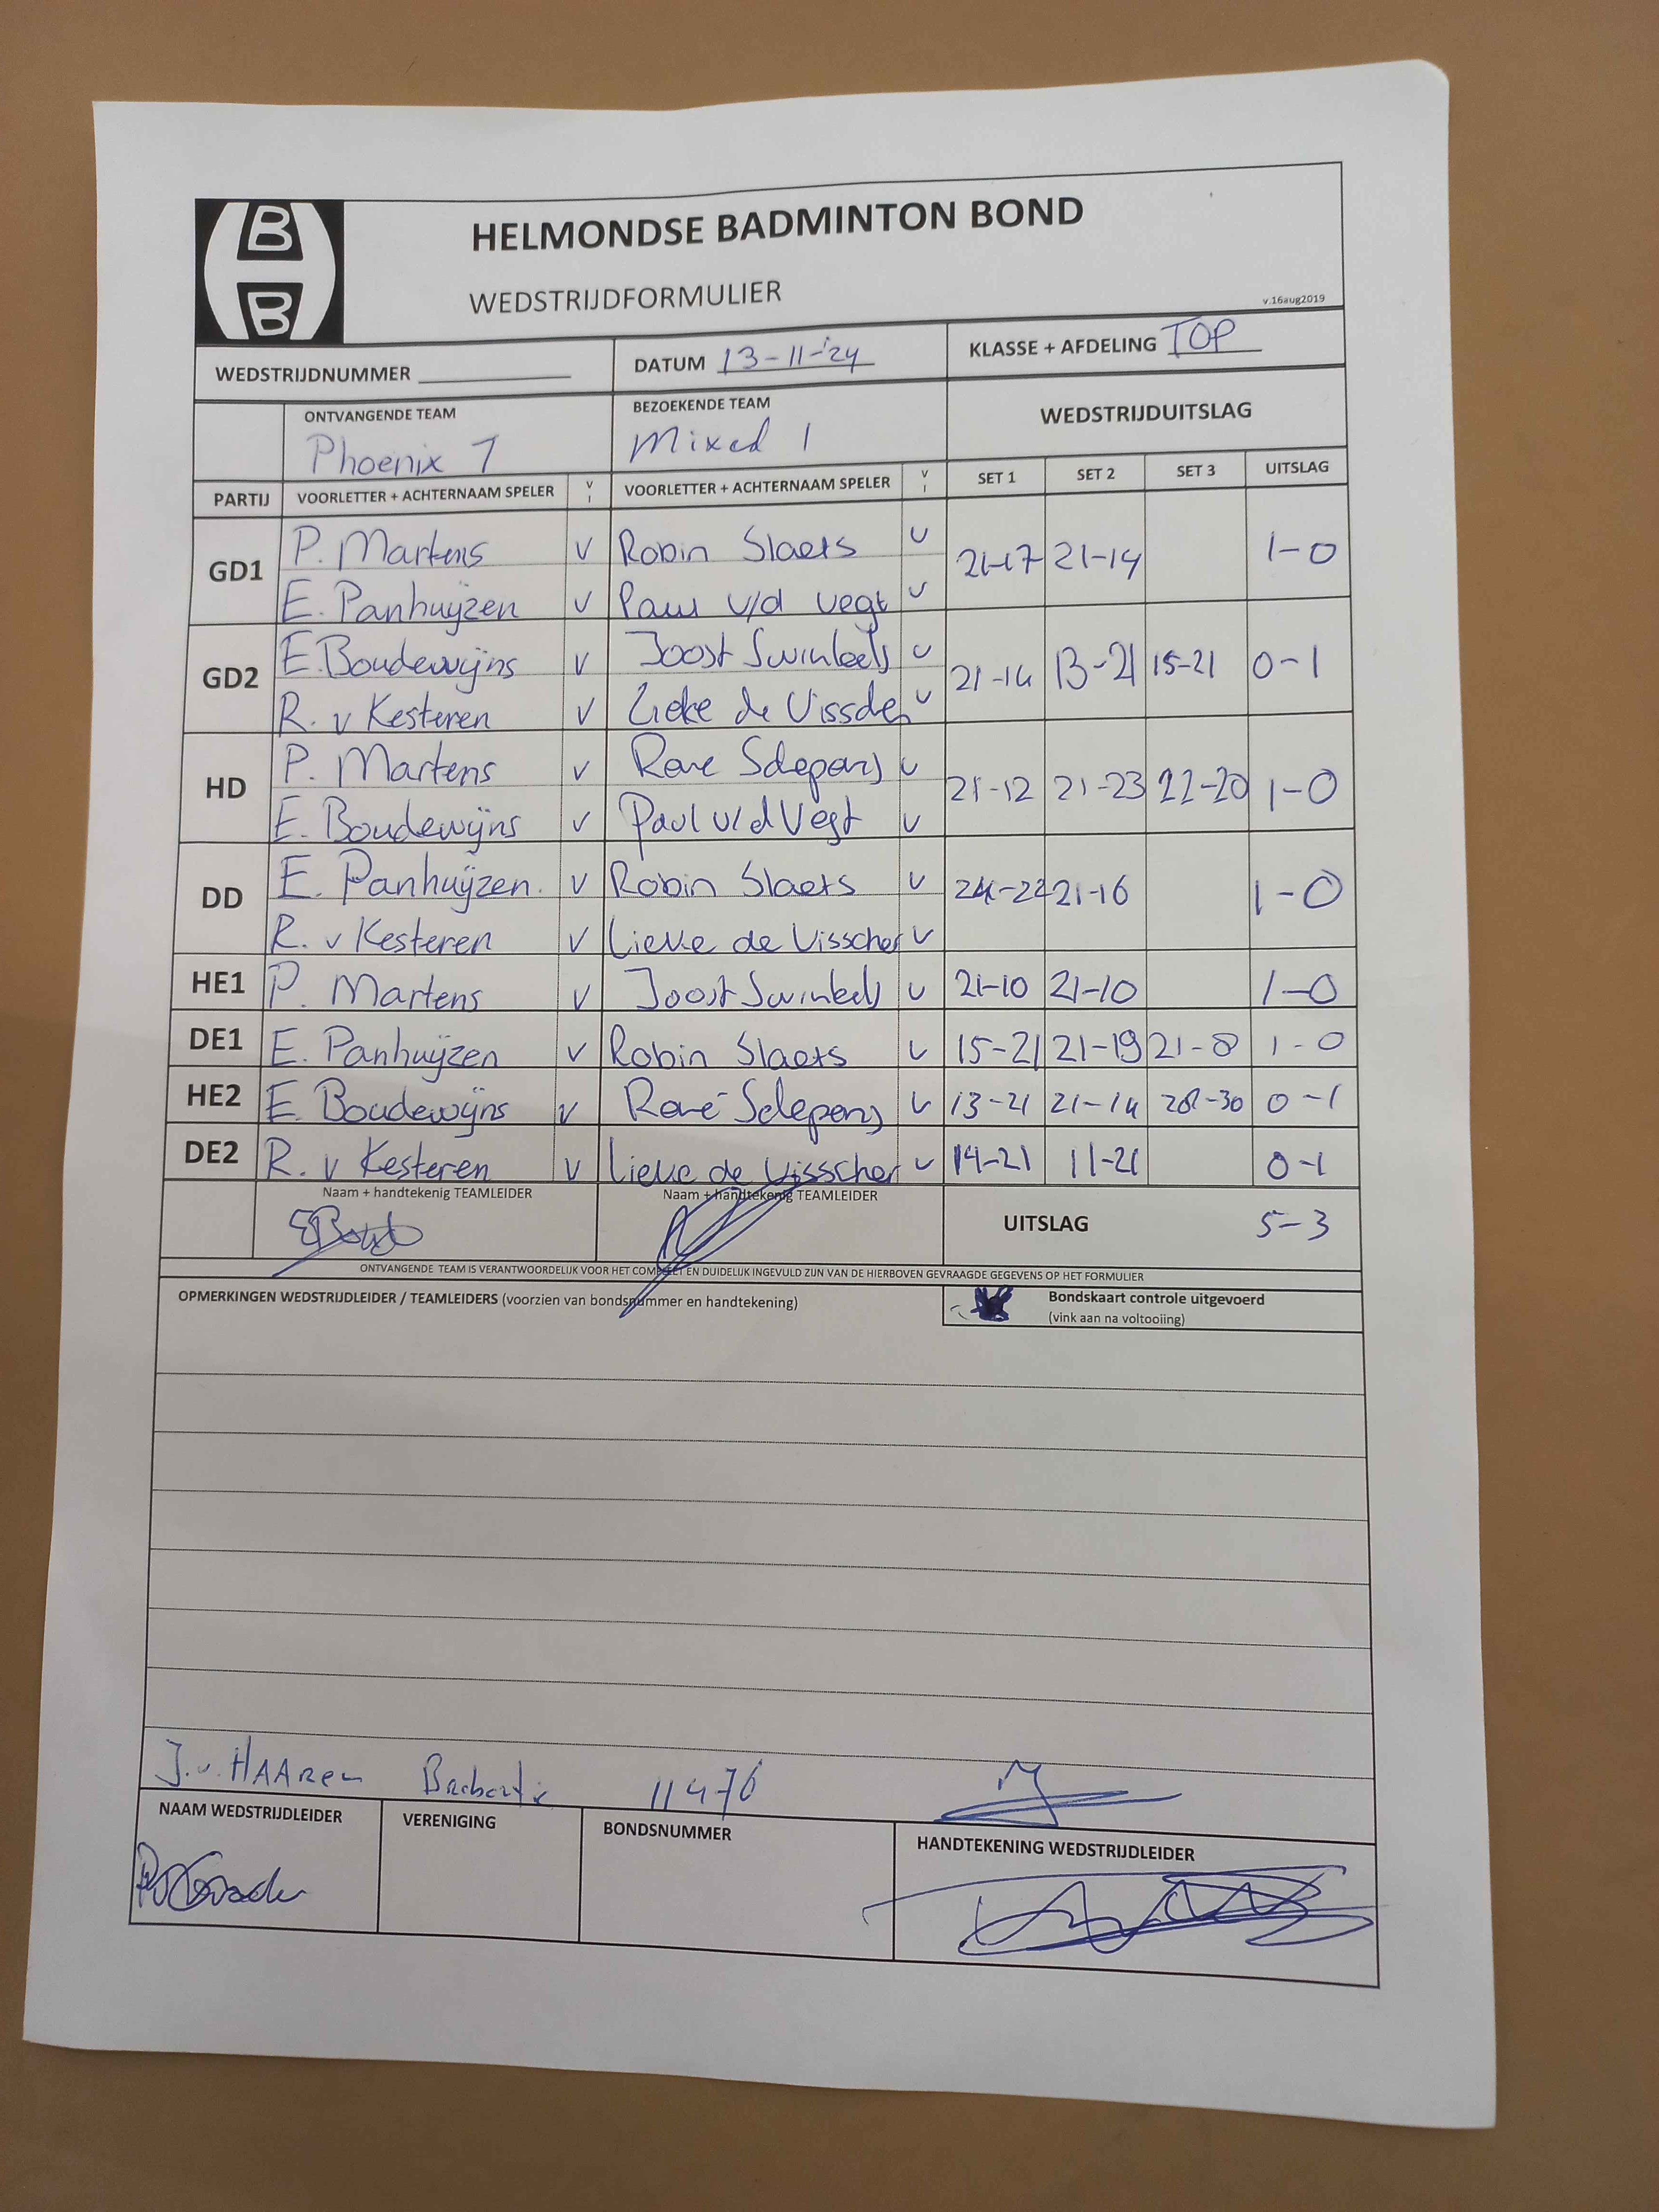 B
B
HELMONDSE BADMINTON BOND
WEDSTRIJDFORMULIER
v.16aug2019
WEDSTRIJDNUMMER DATUM 13-11-'24 KLASSE + AFDELING TOP
ONTVANGENDE TEAM BEZOEKENDE TEAM WEDSTRIJDUITSLAG
Phoenix 1 Mixed 1
PARTIJ VOORLETTER + ACHTERNAAM SPELER V I VOORLETTER + ACHTERNAAM SPELER V I SET 1 SET 2 SET 3 UITSLAG
GD1 P. Martens v Robin Slaets v 21-17 21-14 1-0
E. Panhuijzen v Paul v/d Vegt v
GD2 E. Boudewijns v Joost Swinkels v 21-14 13-21 15-21 0-1
R. v Kesteren v Lieke de Visscher v
HD P. Martens v René Schepens v 21-12 21-23 22-20 1-0
E. Boudewijns v Paul v/d Vegt v
DD E. Panhuijzen. v Robin Slaets v 24-22 21-16 1-0
R. v Kesteren v Lieke de Visscher v
HE1 P. Martens v Joost Swinkels v 21-10 21-10 1-0
DE1 E. Panhuijzen v Robin Slaets v 15-21 21-19 21-8 1-0
HE2 E. Boudewijns v René Schepens v 13-21 21-14 28-30 0-1
DE2 R. v Kesteren v Lieke de Visscher v 14-21 11-21 0-1
Naam + handtekenig TEAMLEIDER Naam + handtekenig TEAMLEIDER UITSLAG 5-3
ONTVANGENDE TEAM IS VERANTWOORDELIJK VOOR HET COMPLEET EN DUIDELIJK INGEVULD ZIJN VAN DE HIERBOVEN GEVRAAGDE GEGEVENS OP HET FORMULIER
OPMERKINGEN WEDSTRIJDLEIDER / TEAMLEIDERS (voorzien van bondsnummer en handtekening) Bondskaart controle uitgevoerd
(vink aan na voltooiing)
J. v. HAAREN 11476
NAAM WEDSTRIJDLEIDER VERENIGING BONDSNUMMER HANDTEKENING WEDSTRIJDLEIDER